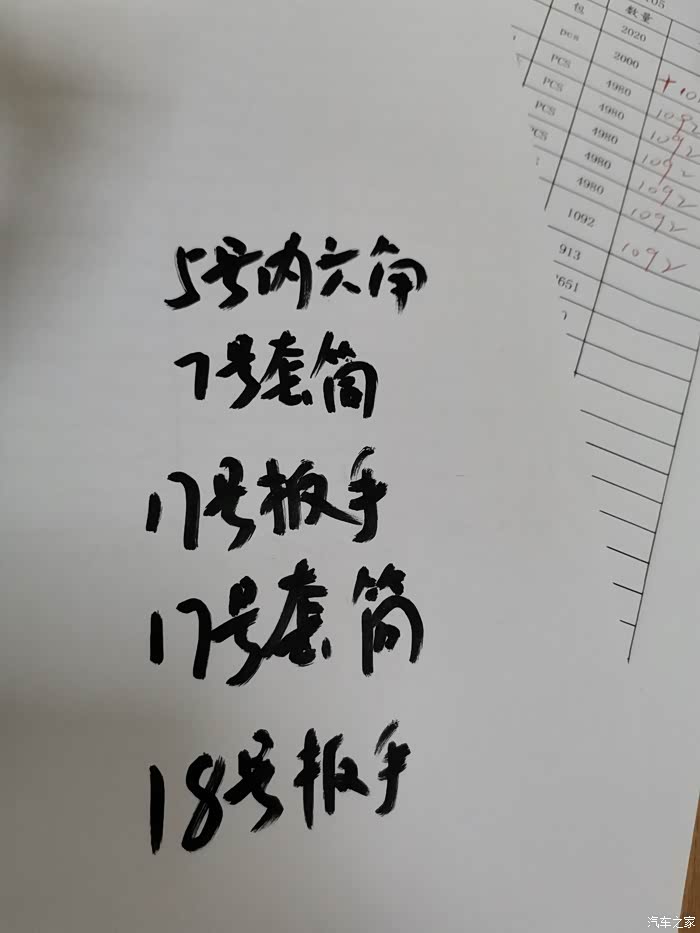 5号内六角
7号套筒
17号扳手
17号套筒
18号扳手
05
包 数量
pcs 2020
PCS 2000
PCS 4980
PCS 4980 1092
4980 1092
4980 1092
4980 1092
1092 1092
913 1092
651
汽车之家